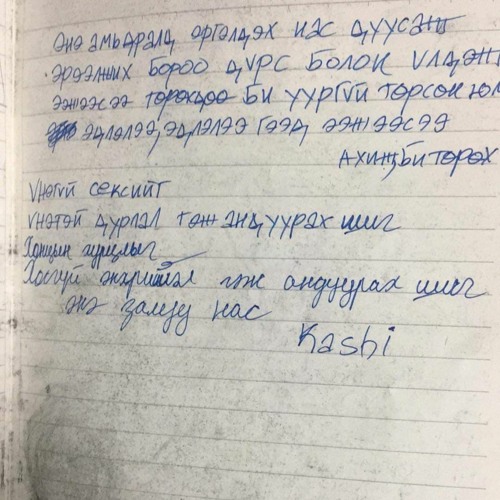 энэ амьдралд өргөлдэх нас дуусаж
эрээлжих бороо дүрс болон үлдэж
ээжээсээ төрөхдөө би уургүй төрсөн юм
эдлэлээ, эдлэлээ гээд ээжээсээ
ахинж би төрөх
үнэгүй сексийг
үнэтэй дурлал гэж андуурах шиг
Хонцын хурцлыг
Хосгүй энэрийгэл гэж андуурах шиг
энэ залуу нас
Kashi